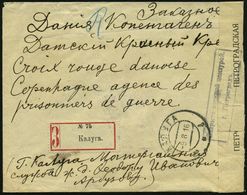 Заказное
Данія Копенгаген
Датскій Красный Кре
Croix rouge danoise
Copenhague agence des
prisonniers de guerre.
№ 75
З Калуга.
КАЛУГА
8 16
Г. Калуга
служ ж. д. Ѳеодору Ивановичу
ПЕТРОГРАДСКАЯ
ПЕТР